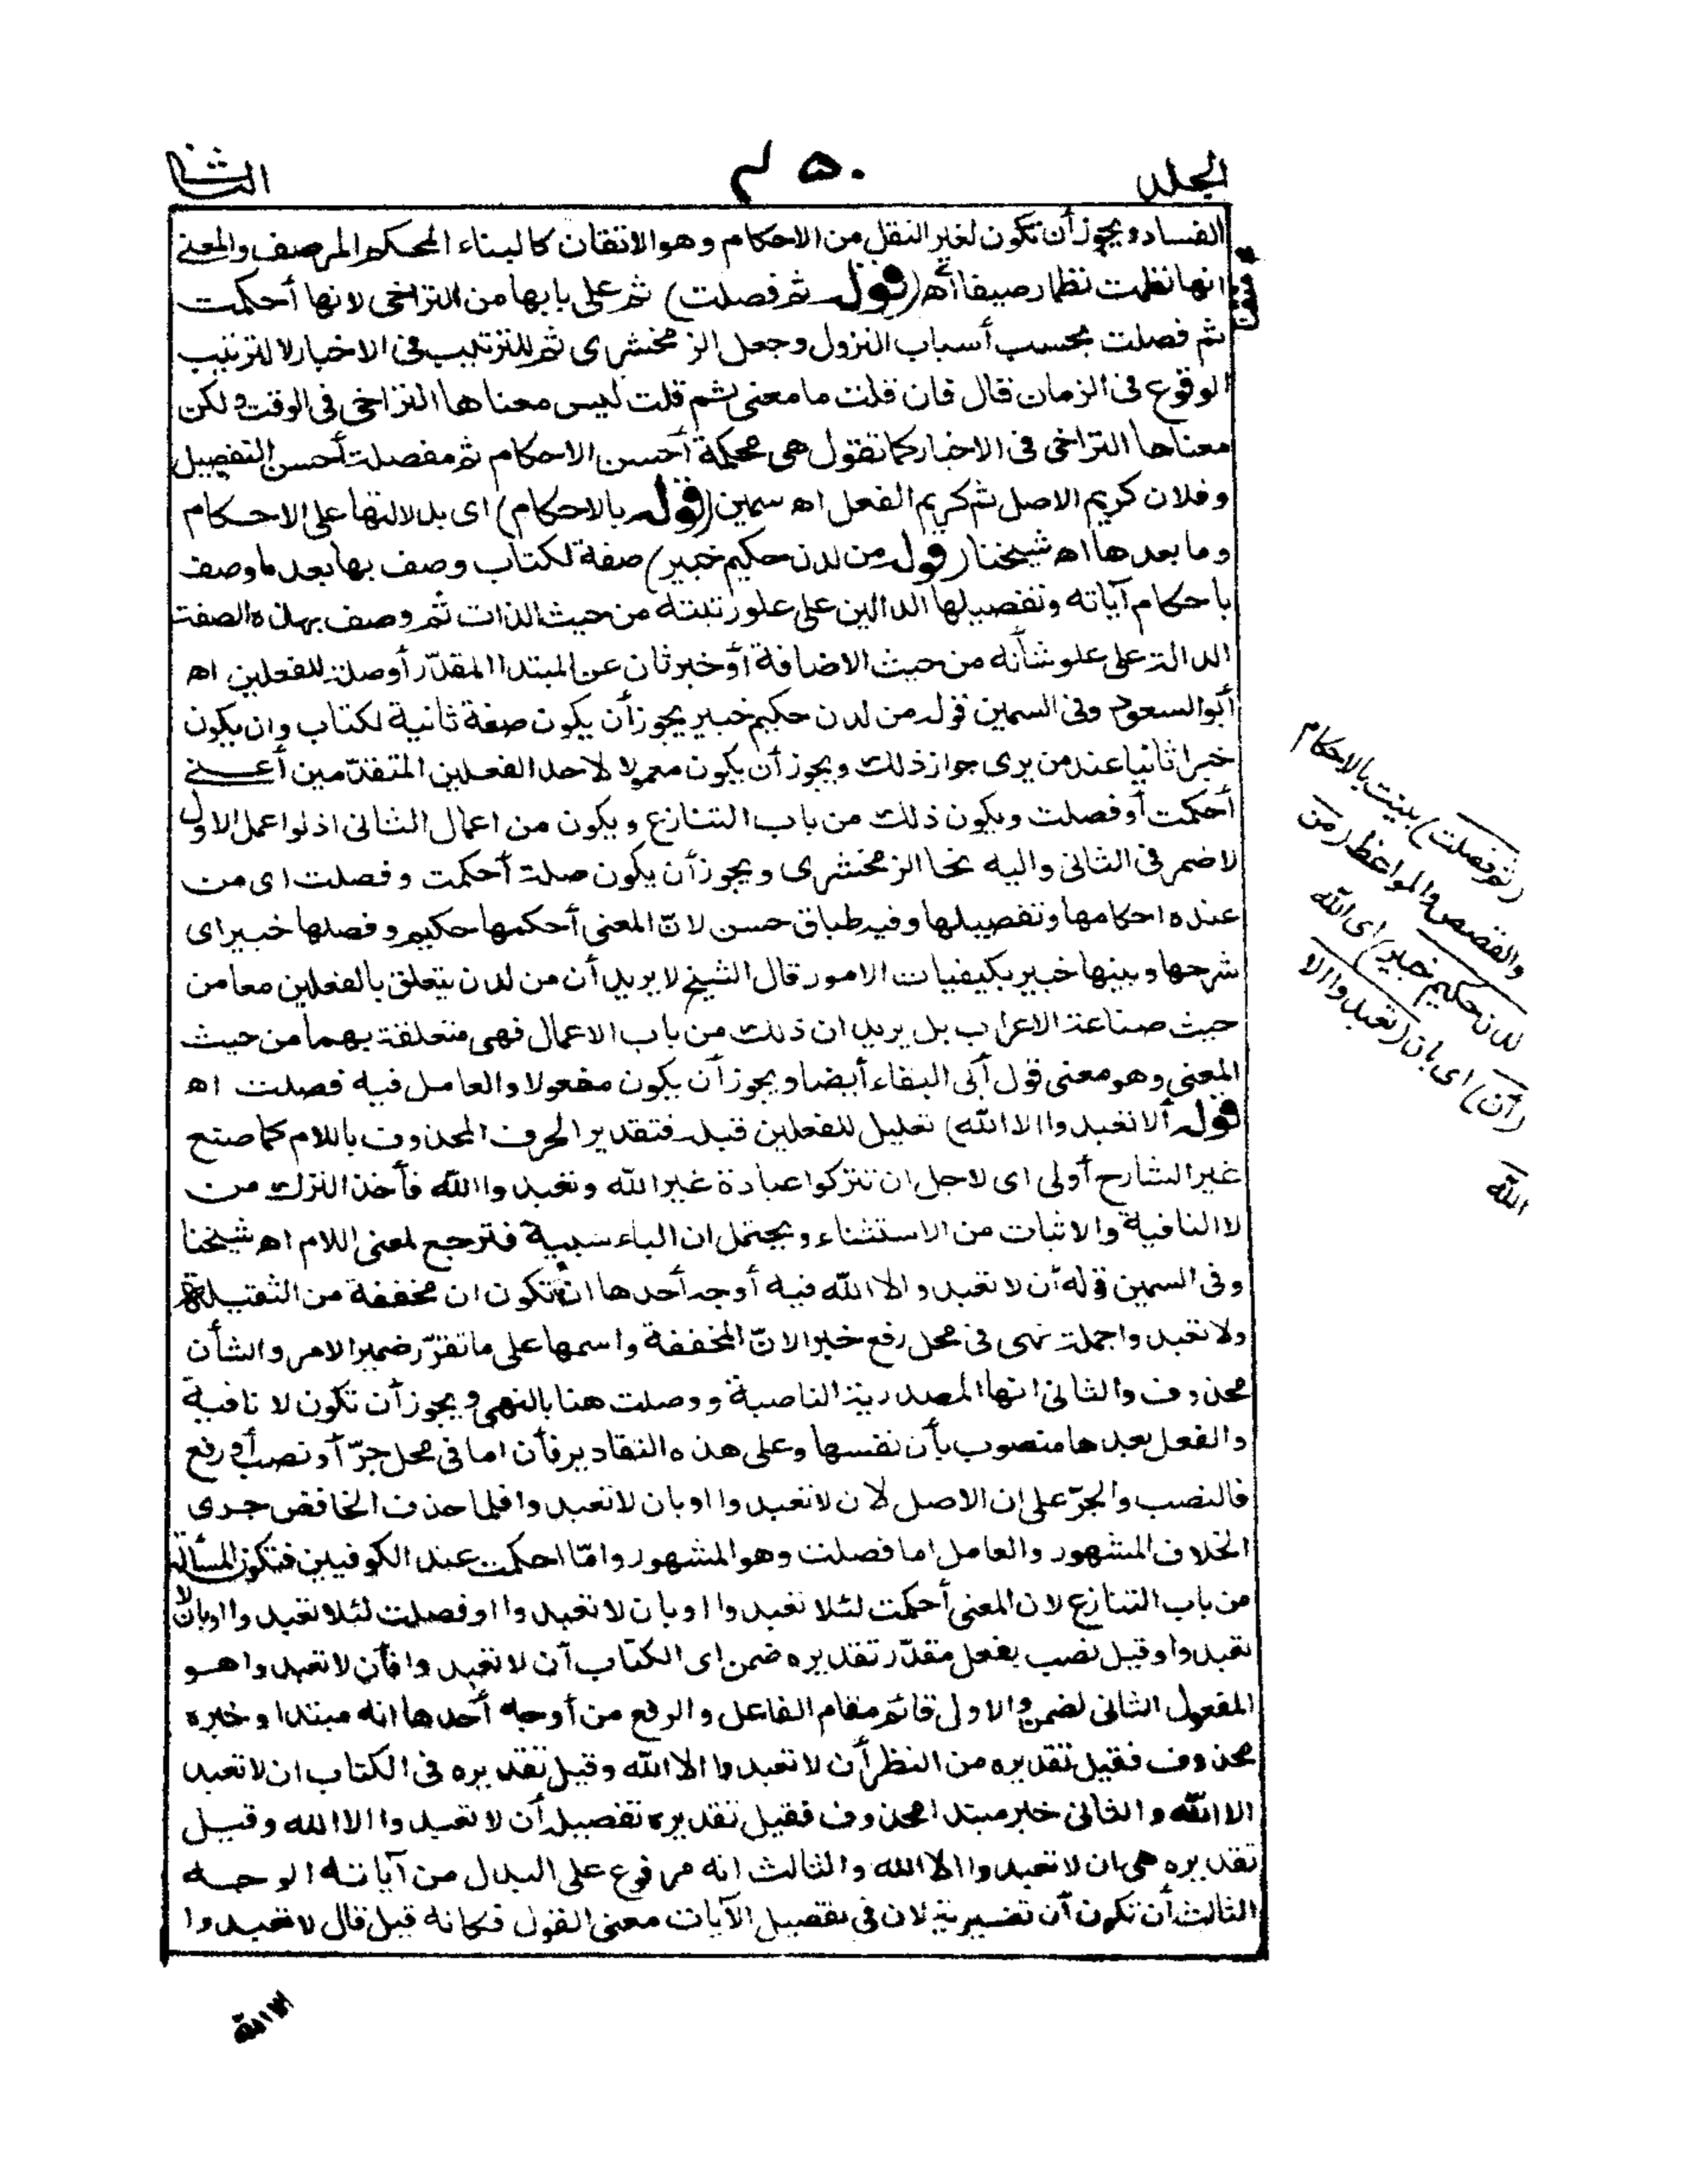 المجلد
٤٥٠
الثانى
الفساد ويجوز أن تكون لغير النقل من الاحكام وهو الاتقان كالبناء المحكم المرصف والمعنى
انها نظمت نظما رصيفا اه (قوله ثم فصلت) ثم على بابها من التراخى لانها أحكمت
ثم فصلت بحسب أسباب النزول وجعل الزمخشرى ثم للترتيب فى الاخبار لا لترتيب
الوقوع فى الزمان قال فان قلت ما معنى ثم قلت ليس معناها التراخى فى الوقت ولكن
معناها التراخى فى الاخبار كما تقول هى محكمة أحسن الاحكام ثم مفصلت أحسن التفصيل
وفلان كريم الاصل ثم كريم الفعل اه سمين (قوله بالاحكام) اى بدلالتها على الاحكام
وما بعدها اه شيخنا (قوله من لدن حكيم خبير) صفة لكتاب وصف بها بعد ما وصف
باحكام آياته وتفصيلها الدالين على علو رتبته من حيث الذات ثم وصف بهذه الصفت
الدالة على علو شأنه من حيث الاضافة أو خبر ثان عن المبتدا المقدّر أو صلة للفعلين اه
أبو السعود وفى السمين قوله من لدن حكيم خبير يجوز أن يكون صفة ثانية لكتاب وان يكون
خبرا ثانيا عند من يرى جواز ذلك ويجوز أن يكون معمولا لاحد الفعلين المتقدّمين أعنى
أحكمت أو فصلت ويكون ذلك من باب التنازع ويكون من اعمال الثانى اذ لو اعمل الاول
لاضمر فى الثانى واليه نحا الزمخشرى ويجوز أن يكون صلة أحكمت وفصلت اى من
عنده احكامها وتفصيلها وفيه طباق حسن لانّ المعنى أحكمها حكيم وفصلها خبير اى
شرحها وبينها خبير بكيفيات الامور قال الشيخ لا يريد أن من لدن يتعلق بالفعلين معا من
حيث صناعة الاعراب بل يريد ان ذلك من باب الاعمال فهى متعلقة بهما من حيث
المعنى وهو معنى قول أبى البقاء أيضا ويجوز أن يكون مفعولا والعامل فيه فصلت اه
قوله ألا تعبدوا الا الله) تعليل للفعلين قبله فتقدير الحرف المحذوف باللام كما صنع
غير الشارح أولى اى لاجل ان تتركوا عبادة غير الله وتعبدوا الله فأخذ الترك من
لا النافية والاثبات من الاستثناء ويحتمل ان الباء سببية فترجع لمعنى اللام اه شيخنا
وفى السمين قوله أن لا تعبدوا الا الله فيه أوجه أحدها ان تكون ان مخففة من الثقيلة
ولا تعبدوا جملة نهى فى محل رفع خبرا لانّ المخففة واسمها على ما تقرّر ضمير الامر والشأن
محذوف والثانى انها المصدرية الناصبة ووصلت هنا بالنهى ويجوز أن تكون لا نافية
والفعل بعدها منصوب بأن نفسها وعلى هذه التقادير فأن اما فى محل جرّ أو نصب أو رفع
فالنصب والجرّ على ان الاصل لان لا تعبدوا او بان لا تعبدوا فلما حذف الخافض جرى
الخلاف المشهور والعامل اما فصلت وهو المشهور وامّا احكمت عند الكوفيين فتكون المسألة
من باب التنازع لان المعنى أحكمت لئلا تعبدوا او بان لا تعبدوا او فصلت لئلا تعبدوا او بان لا
تعبدوا وقيل نصب بفعل مقدّر تقديره ضمن اى الكتاب أن لا تعبدوا فأن لا تعبدوا هو
المفعول الثانى لضمن والاول قائم مقام الفاعل والرفع من أوجه أحدها انه مبتدا وخبره
محذوف فقيل تقديره من النظر أن لا تعبدوا الا الله وقيل تقديره فى الكتاب ان لا تعبد
الا الله والثانى خبر مبتدا محذوف فقيل تقديره تفصيله أن لا تعبدوا الا الله وقيل
تقديره هى ان لا تعبدوا الا الله والثالث انه مرفوع على البدل من آياته الوجه
الثالث أن تكون أن تفسيرية لان فى تفصيل الآيات معنى القول فكانه قيل قال لا تعبدوا
الا الله
(ثم فصلت) بينت بالاحكام
والقصص والمواعظ (من
لدن حكيم خبير) اى الله
(أن) اى بان (تعبدوا الا
الله